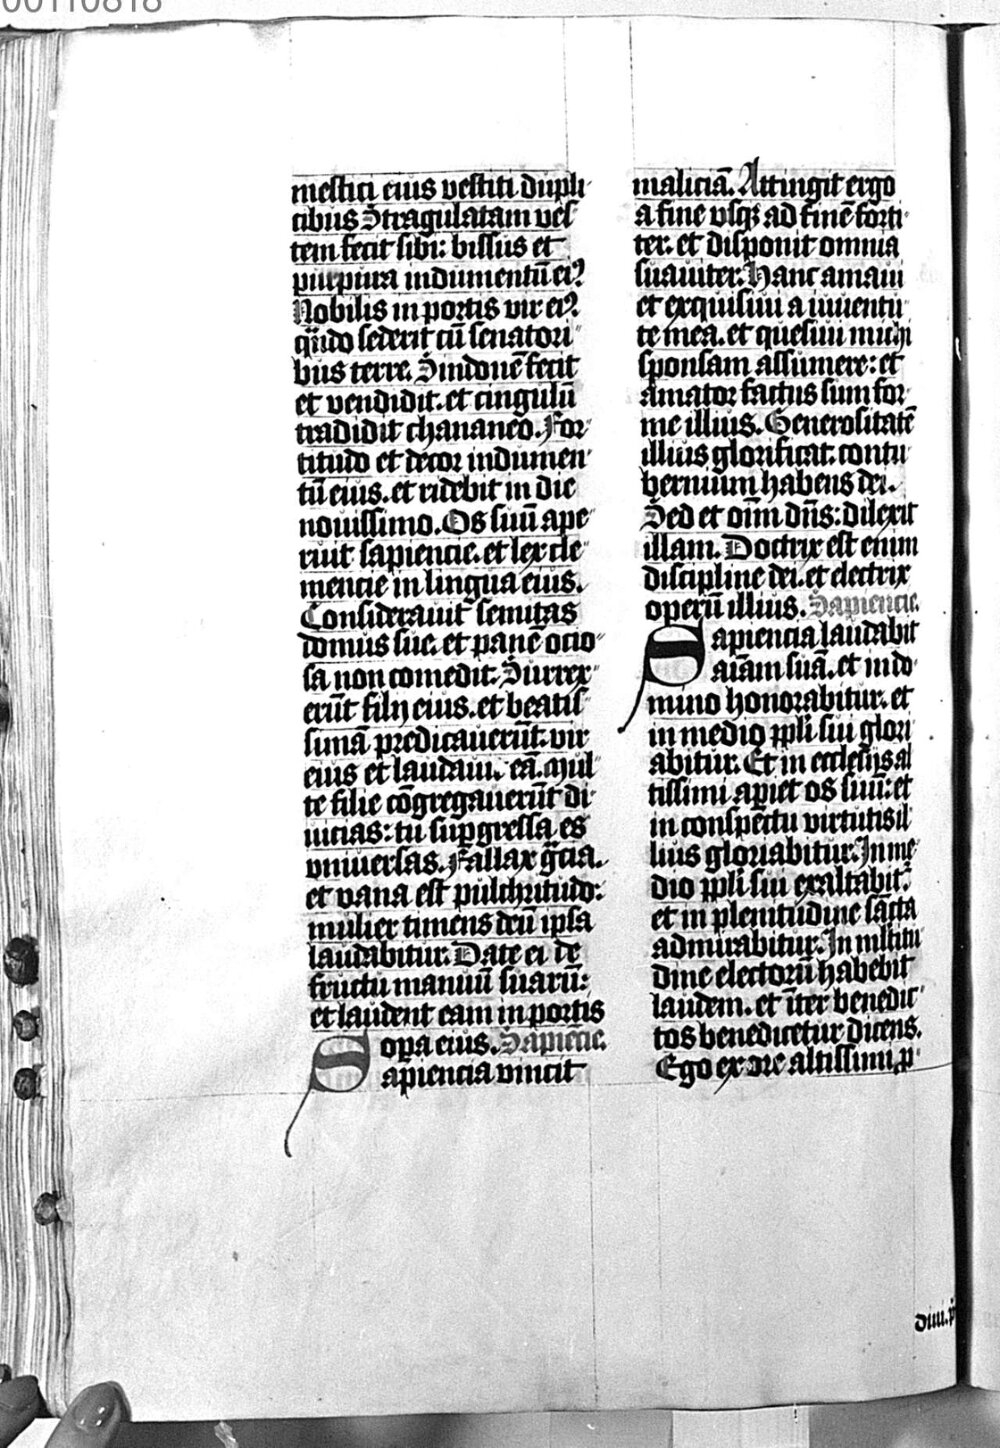 00110818
mestici eius vestiti dupli
cibus Stragulatam ves
tem fecit sibi: bissus et
purpura indumentū eiꝰ
Nobilis in portis vir eiꝰ.
qn̄do sederit cū senatori
bus terre. Sindonē fecit
et vendidit. et cingulū
tradidit chananeo. For
titudo et decor indumen
tū eius. et ridebit in die
nouissimo. Os suū ape
ruit sapiencie. et lex cle
mencie in lingua eius.
Considerauit semitas
domus sue. et panē ocio
sa non comedit. Surrex
erūt filij eius. et beatis
simā predicauerūt. vir
eius et laudaui. eā. Mul
te filie cōgregauerūt di
uicias: tu suꝑgressa es
vniuersas. Fallax gr̄cia.
et vana est pulchritudo:
mulier timens deū ipsa
laudabitur. Date ei de
fructu manuū suarū:
et laudent eam in portis
opera eius. Sapiēcie.
Sapiencia vincit
maliciā. Attingit ergo
a fine vsqꝫ ad finē forti
ter. et disponit omnia
suauiter. Hanc amaui
et exquisiui a iuuentu
te mea. et quesiui michi
sponsam assumere: et
amator factus sum for
me illius. Generositatē
illius glorificat. contu
bernium habens dei.
Sed et oīm dn̄s: dilexit
illam. Doctrix est enim
discipline dei. et electrix
operū illius. Sapiencie.
Sapiencia laudabit
aīam suā. et in do
mino honorabitur. et
in medio ppli sui glori
abitur. Et in ecclesijs al
tissimi apiet os suū: et
in conspectu virtutis il
lius gloriabitur. In me
dio ppli sui exaltabit᷑.
et in plenitudine sācta
admirabitur. In mltitu
dine electorū habebit
laudem. et īter benedic
tos benedicetur dicens.
Ego ex ore altissimi ꝓ